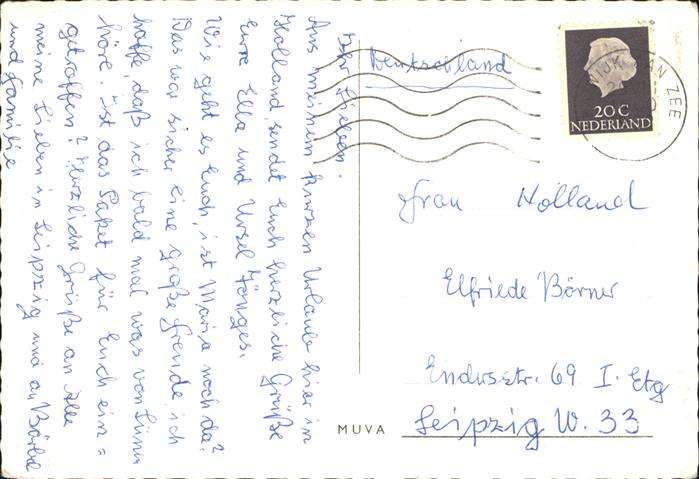 Ihr Lieben.
Aus meinem kurzen Urlaub hier in
Holland, sendet Euch herzliche Grüße
Eure Ella und Ursel Tönges.
Wie geht es Euch, ist Maria noch da?
Das war sicher eine große Freude, ich
hoffe, daß ich bald mal was von
höre. Ist das Paket für Euch ein=
getroffen? Herzliche Grüße an Alle
meine Lieben in Leipzig und an Bärbel
und Familie
Deutschland
WIJK AAN ZEE
20 C
NEDERLAND
Frau Holland
Elfriede Börner
Endersstr. 69 I. Etg
Leipzig W. 33
MUVA